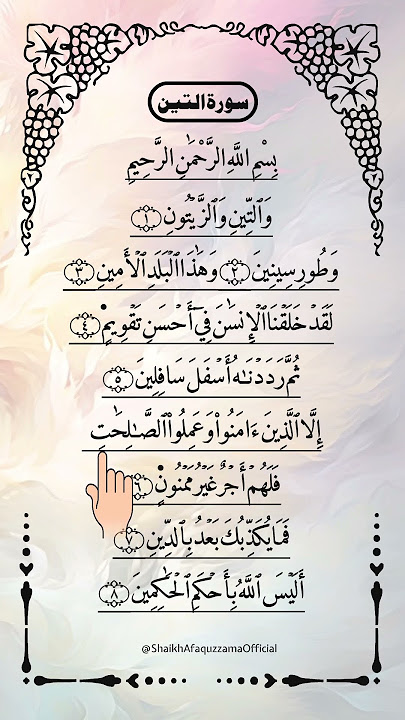 سورة التين
بِسْمِ اللَّهِ الرَّحْمَٰنِ الرَّحِيمِ
وَالتِّينِ وَالزَّيْتُونِ ١
وَطُورِ سِينِينَ ٢ وَهَٰذَا الْبَلَدِ الْأَمِينِ ٣
لَقَدْ خَلَقْنَا الْإِنسَٰنَ فِي أَحْسَنِ تَقْوِيمٍ ٤
ثُمَّ رَدَدْنَٰهُ أَسْفَلَ سَافِلِينَ ٥
إِلَّا الَّذِينَ ءَامَنُوا وَعَمِلُوا الصَّٰلِحَٰتِ
فَلَهُمْ أَجْرٌ غَيْرُ مَمْنُونٍ
فَمَا يُكَذِّبُكَ بَعْدُ بِالدِّينِ ٧
أَلَيْسَ اللَّهُ بِأَحْكَمِ الْحَٰكِمِينَ ٨
@ShaikhAfaquzzamaOfficial